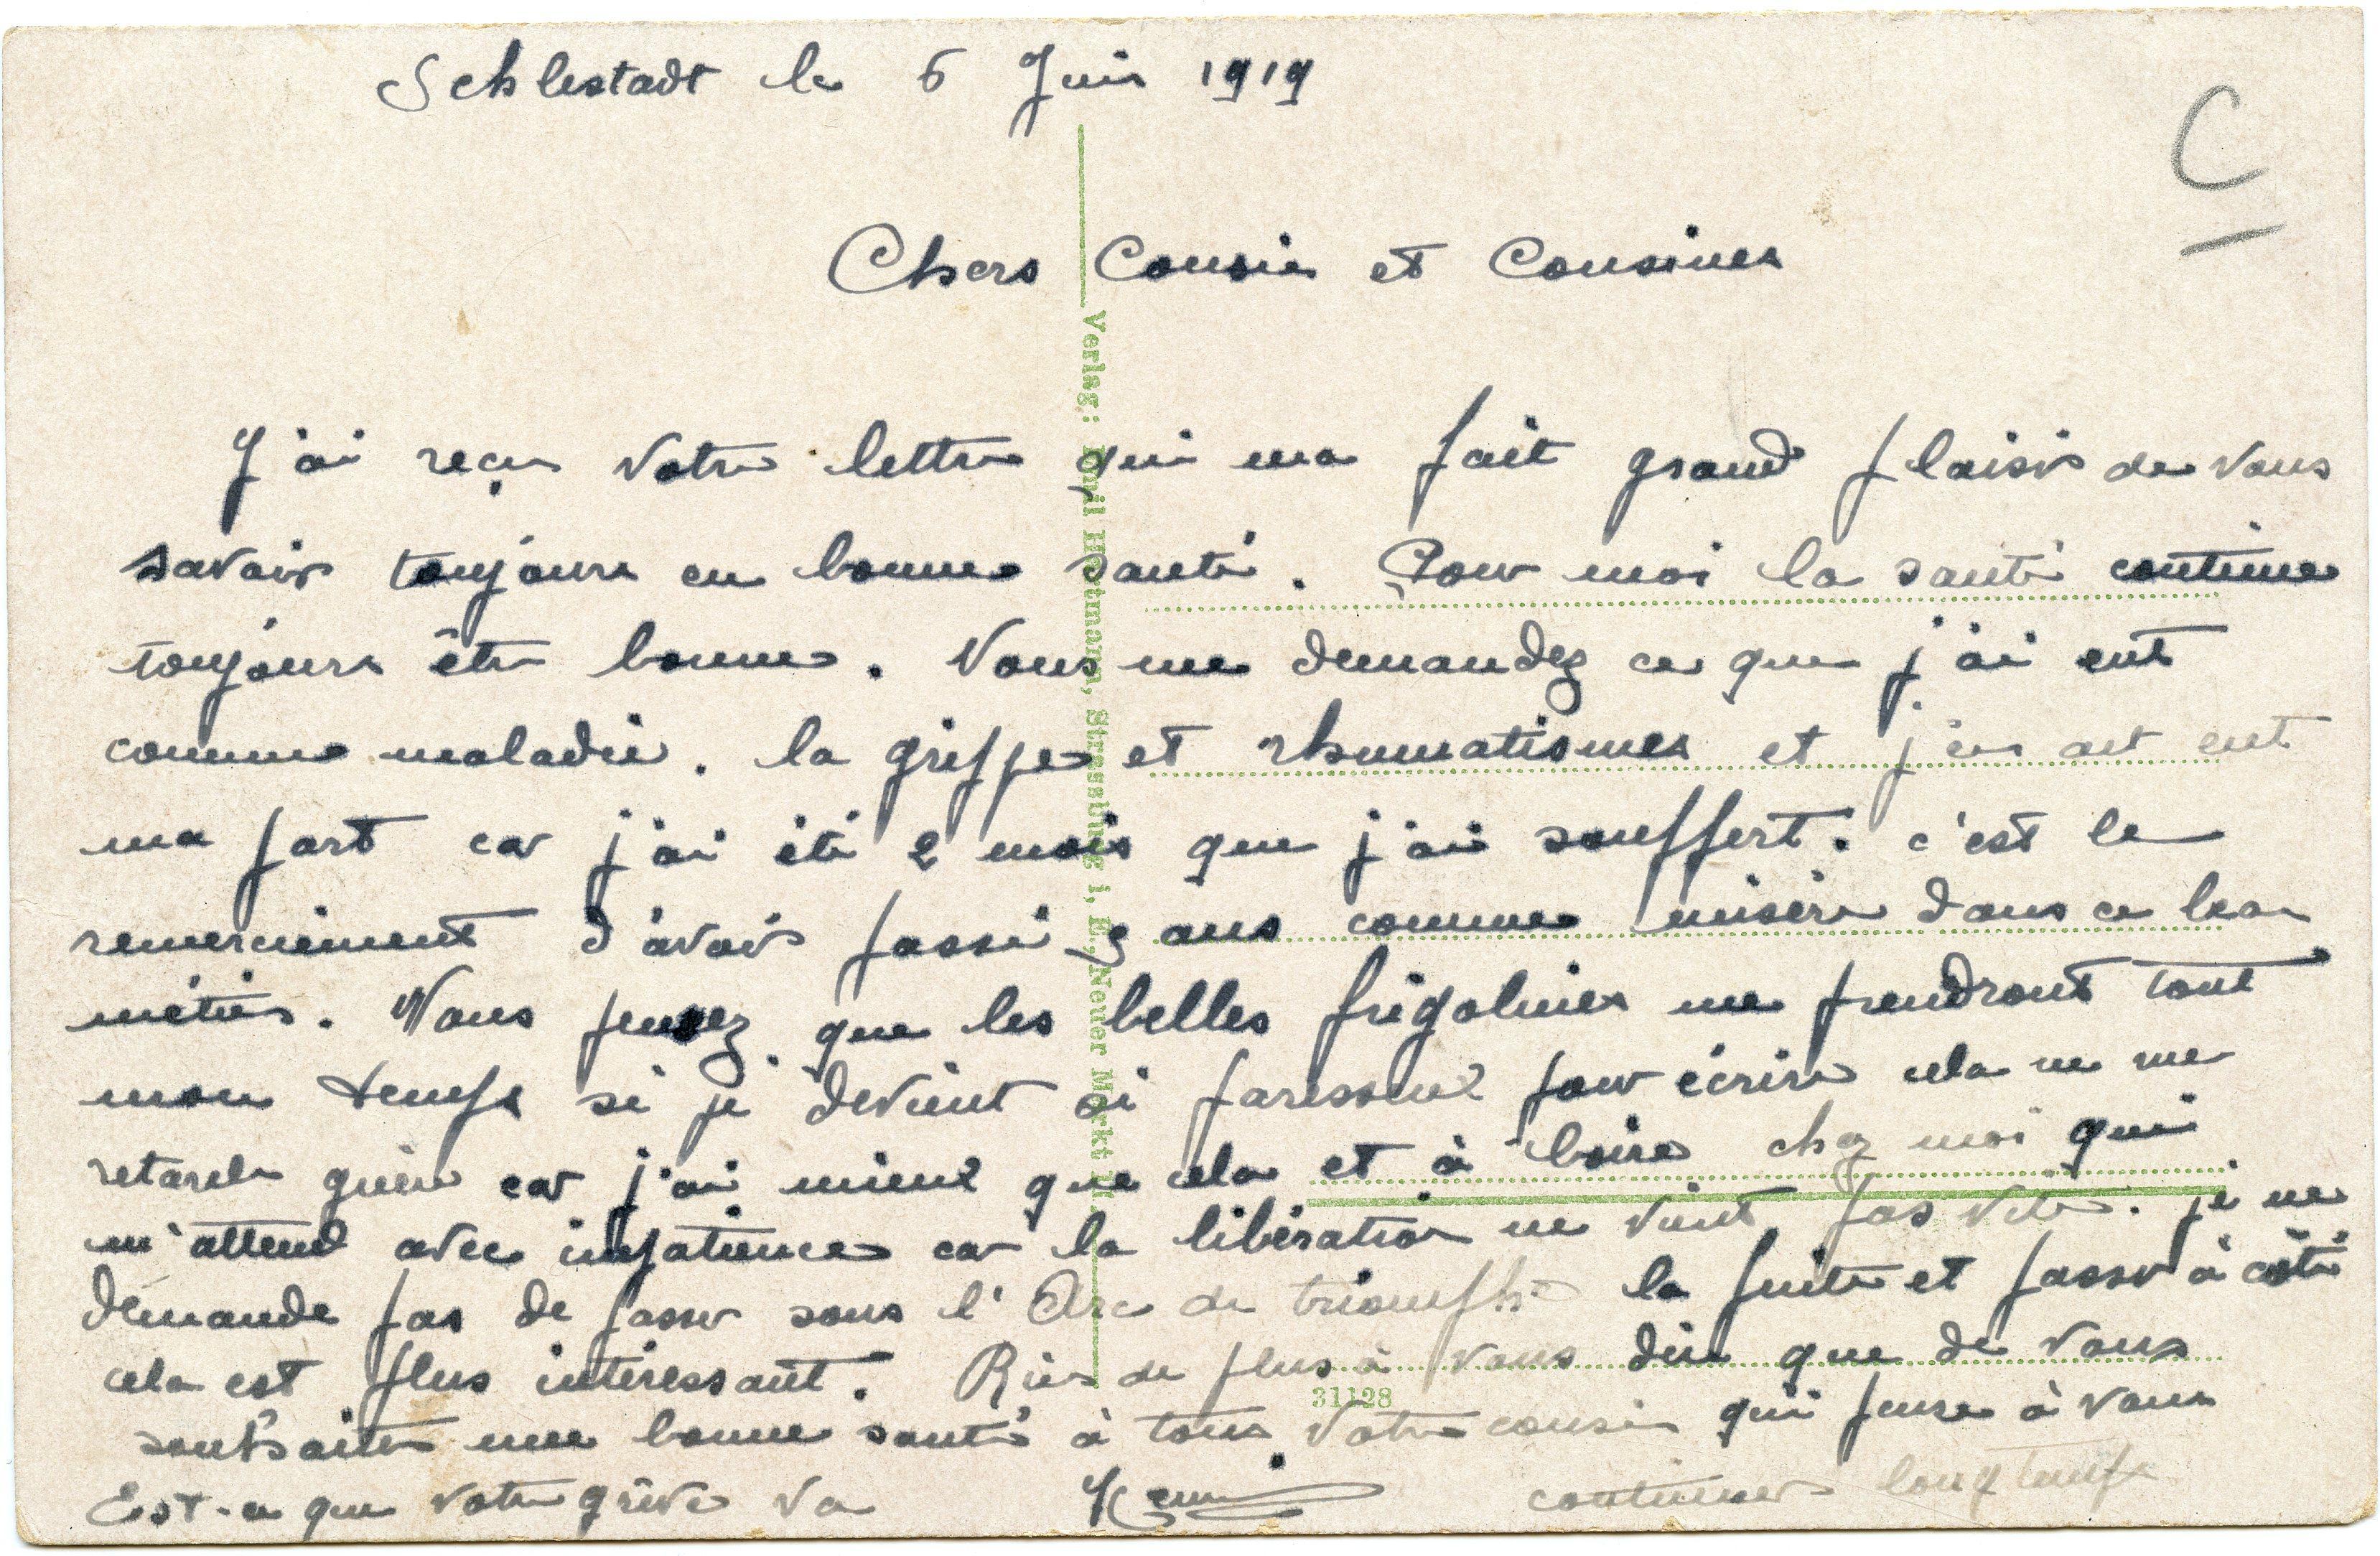 Schlestadt le 6 Juin 1919
C
Chers Cousin et Cousines
J'ai reçu votre lettre qui ma fait grand plaisir de vous
savoir toujours en bonne santé. Pour moi la santé continue
toujours être bonne. Vous me demandez ce que j'ai eut
comme maladie. la grippe et rhumatismes et j'en ait eut
ma part car j'ai été 2 mois que j'ai souffert. c'est le
remerciement d'avoir passé 3 ans comme misère dans ce beau
métier. Vous pensez que les belles me prendront tout
mon temps si je devient si paresseux pour écrire cela ne me
retarde guère car j'ai mieux que cela et à boire chez moi qui
m'attend avec impatience car la libération ne vient pas vite. je ne
demande pas de passer sous l'Arc de triomphe la fuite et passer à côté
cela est plus intéressant. Rien de plus à vous dire que de vous
souhaiter une bonne santé à tous Votre cousin qui pense à vous
Est-ce que votre grève va continuer longtemps
Verlag: Emil Hartmann, Strassburg i. E., Neuer Markt
31128